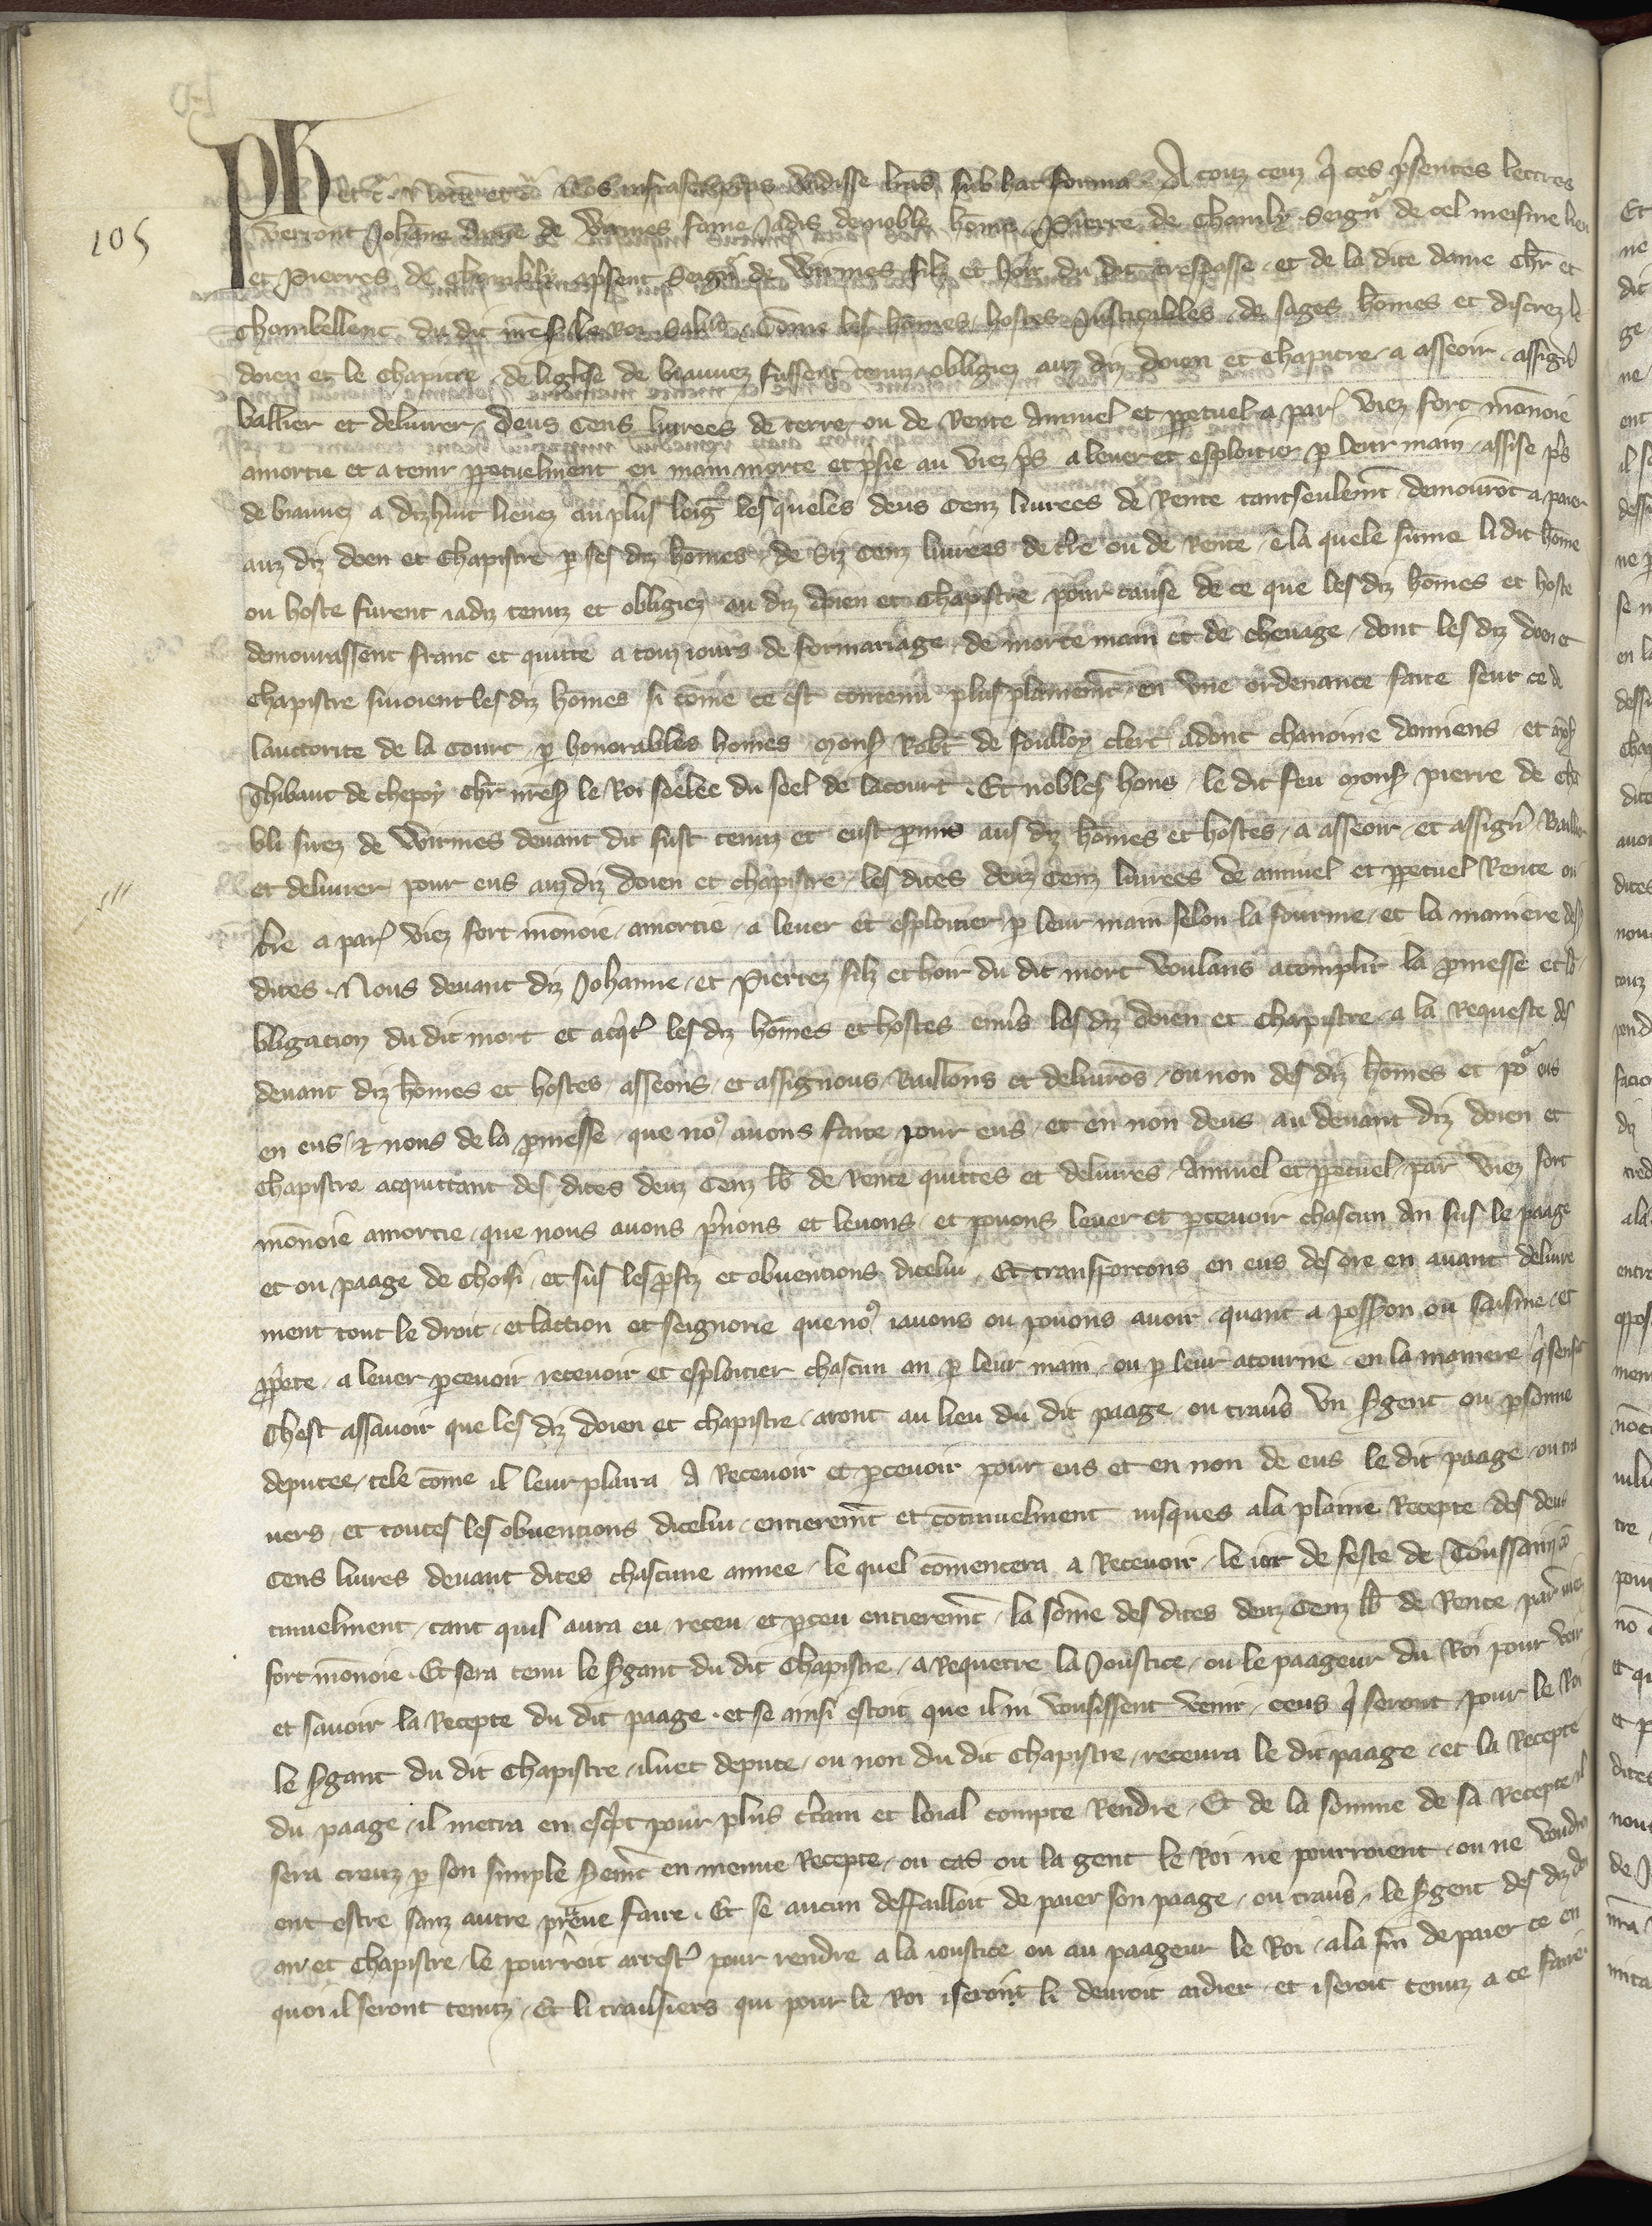 Ph et c̄. Notū et c̄. Nos infrascriptas vidisse lr̄as sub hac forma. A touz ceuz q̇ ces p̃sentes lettres
105
verront Johāne dame de Wirmes fame iadis de noble hōme Pierre de Chambly seignr̃ de cel meisme lieu
et Pierres de Chambly a p̃sent seignr̃ de Wirmes filz et hoir du dit trespasse et de la dite dame chr̄ et
chambellenc du dit nr̄e s̃ le Roi salut. Cōme les hōmes hostes Justicables de sages hōmes et discrez le
doien et le chapitre de liglise de biauuez fussent tenuz obligiez auz diz doien et chapitre a asseoir assign̄
ballier et deliurer deus cens liurees de terre ou de rente annuel et ppetuel a par̃ viez fort mōnoie
amortie et a tenir ppetuelment en main morte et p̃sie au viez p̃s a leuer et esploitier p leur main assise p̃s
de biauuez a dizhuit lieuez au plus loig les queles deus cenz liurees de rente tantseulem̄t demourōt a paier
auz diz doen et chapistre p les diz hōmes de siz cenz liurees de tr̄e ou de rente ē la quele sūme li dit hōme
ou hoste furent iadiz tenuz et obligiez au diz doien et chapistre pour cause de ce que les diz hōmes et hoste
demourassent franc et quitte a touz iours de formariage de morte main et de cheuage dont les diz doen et
chapistre siuoient les diz hōmes si cōme ce est contenu plus plainem̄t en vne ordenance faite seur ce d
lauctorite de la court p honorables homes mons̃ Robt̄ de foulloy clerc adonc chanoine damiens et
Thibaut de chepoy chr̄ nr̄e s̃ le Roi seelee du seel de la court. Et nobles hons le dit feu mons̃ pierre de cha
bli sirez de Wirmes deuant dit fust tenuz et eust pmis aus diz hōmes et hostes a asseoir et assign̄ baillier
et deliurer pour eus auz diz doien et chapistre les dites deuz cenz liurees de annuel et ppetuel rente ou
tr̄e a par̃ viez fort mōnoie amortie a leuer et esploitier p leur main selon la fourme et la maniere des
dites. Nous deuant diz Johanne et Pierrez filz et hoir du dit mort voulans acomplir la pmesse et lo
bligacion du dit mort et acq̇t̃ les diz hōmes et hostes enũs les diz doien et chapistre a la requeste des
deuant diz hōmes et hostes asseons et assignous baillons et deliurōs ou non des diz hōmes et por̃ eus
en eus et nous de la pmesse que no9 auons faite pour eus et en non deus au deuant diz doien et
chapistre acquittant des dites deuz cenz lb̄ de rente quittes et deliures annuel et ppetuel par̃ viez fort
mōnoie amortie que nous auons p̃nons et leuons et pouons leuer et pceuoir chascun an sus le paage
et ou paage de choisi et sus les pftz et obuentions dicelui. Et transportons en eus des ore en auant deliure
ment tout le droit et laction et seignorie que no9 iauons ou pouons auoir quant a possion ou saisine et
ppete a leuer pceuoir receuoir et esploitier chascun an p leur main ou p leur atourne en la maniere q̇ sensit
Chest assauoir que les diz doien et chapistre aront au lieu du dit paage ou trauũs vn s̃gent ou psonne
deputee tele cōme il leur plaira a receuoir et pceuoir pour eus et en non de eus le dit paage ou tra
uers et toutes les obuentions dicelui entierem̄t et cōtinuelment iusques a la plaine recepte des deus
cens liures deuant dites chascune annee le quel cōmencera a receuoir le ior de feste de Toussainz cō
tinuelment tant quil aura eu receu et pceu entierem̄t la sōme des dites deuz cenz lb̄ de rente par̃ viez
fort mōnoie. Et sera tenu le s̃gant du dit chapistre a requerre la Joustice ou le paageur du Roi pour veir
et sauoir la recepte du dit paage. et se ainsi estoit que il ni vousissent venir ceus q̇ seront pour le Roi
le s̃gant du dit chapistre iluet depute ou non du dit chapistre receura le dit paage et la recepte
du paage il metra en escp̃t pour plus ct̃ain et loial compte rendre. Et de la somme de sa recepte il
sera creuz p son simple s̃em̄t en menue recepte ou cas ou la gent le Roi ne pourroient ou ne voudro
ent estre sanz autre preuue faire. Et se aucun deffailloit de paier son paage ou trauũs le s̃gent des diz do
ien et chapistre le pourroit arrest̃ pour rendre a la ioustice ou au paageur le Roi a la fin de paier ce en
quoi il seront tenuz. Et li trauſiers qui pour le Roi i seront li deuroit aidier et i seroit tenuz a ce faire